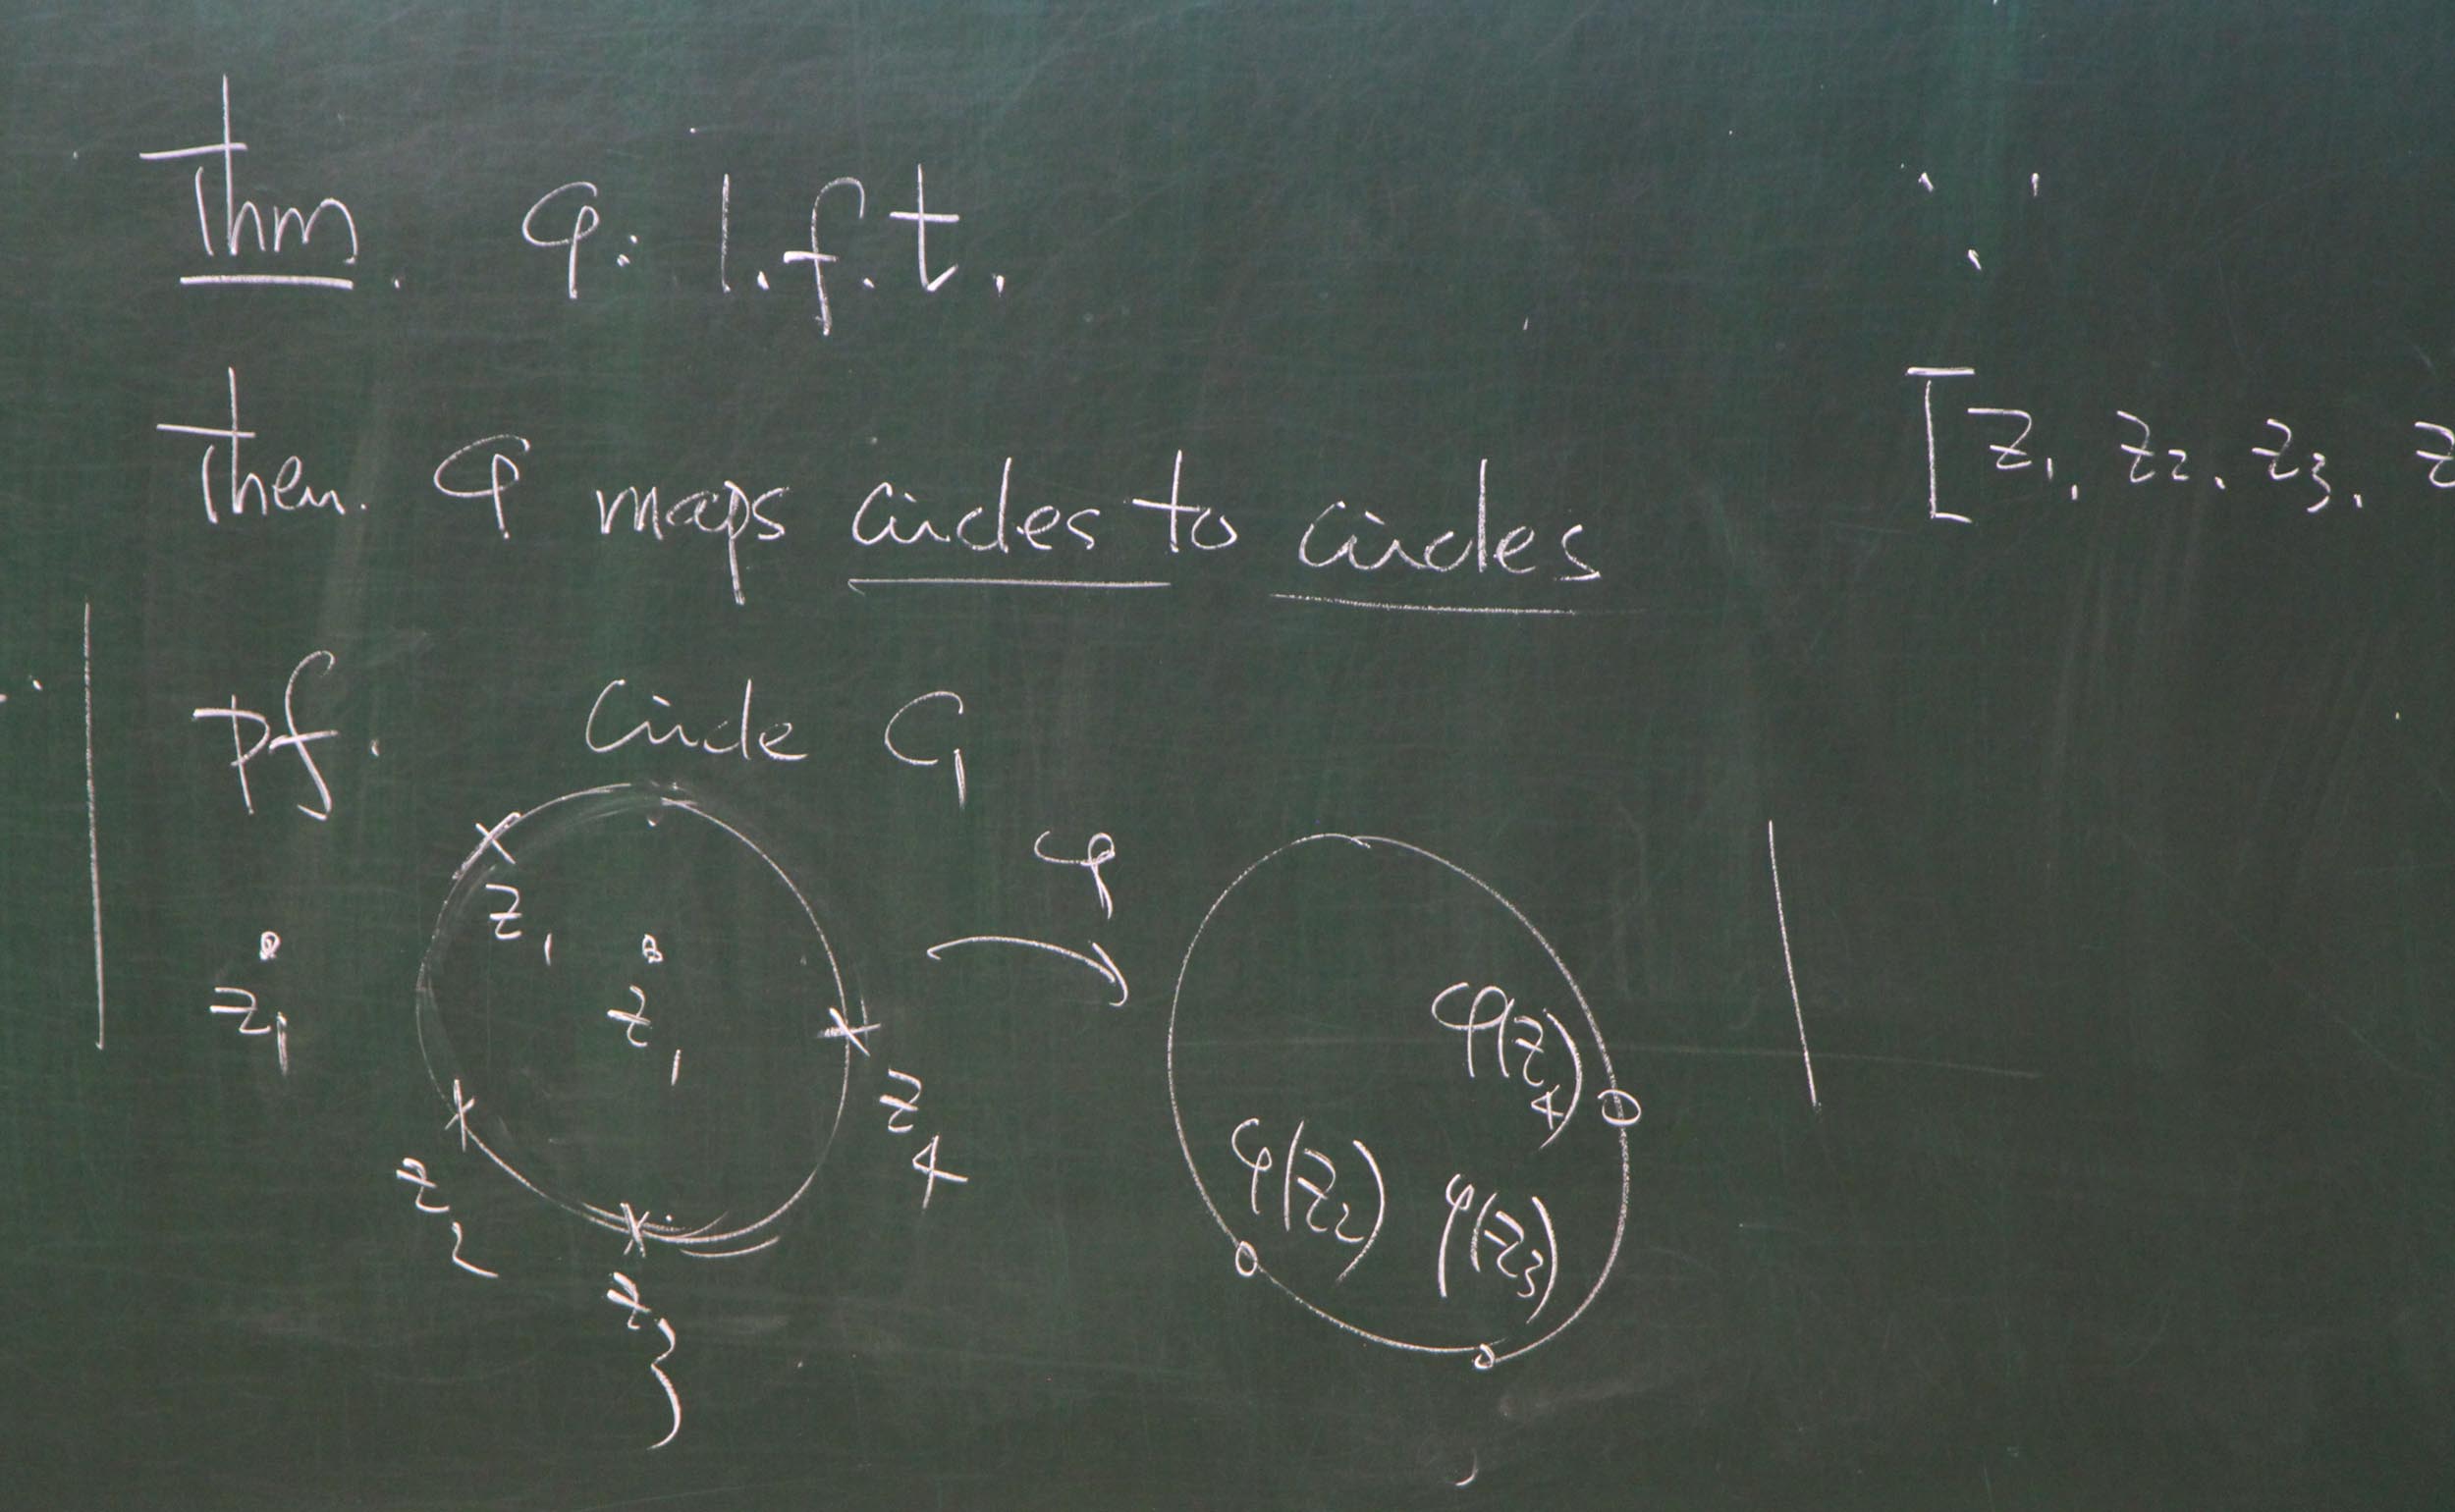 Thm. φ: l.f.t.
Then. φ maps circles to circles
pf. Circle C₁
φ
z₁
z₁
z₁
z₂
z₃
z₄
φ(z₂)
φ(z₃)
φ(z₄)
∵
[z₁, z₂, z₃, z